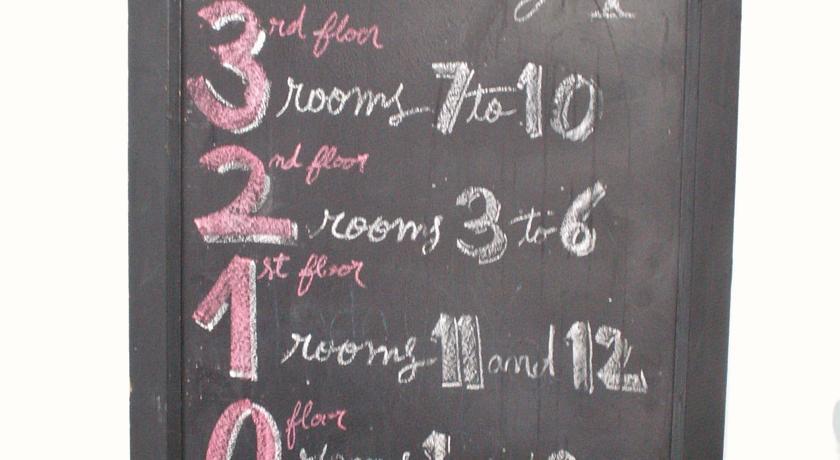 3rd floor
rooms 7 to 10
2nd floor
rooms 3 to 6
1st floor
rooms 11 and 12
0 floor
rooms 1